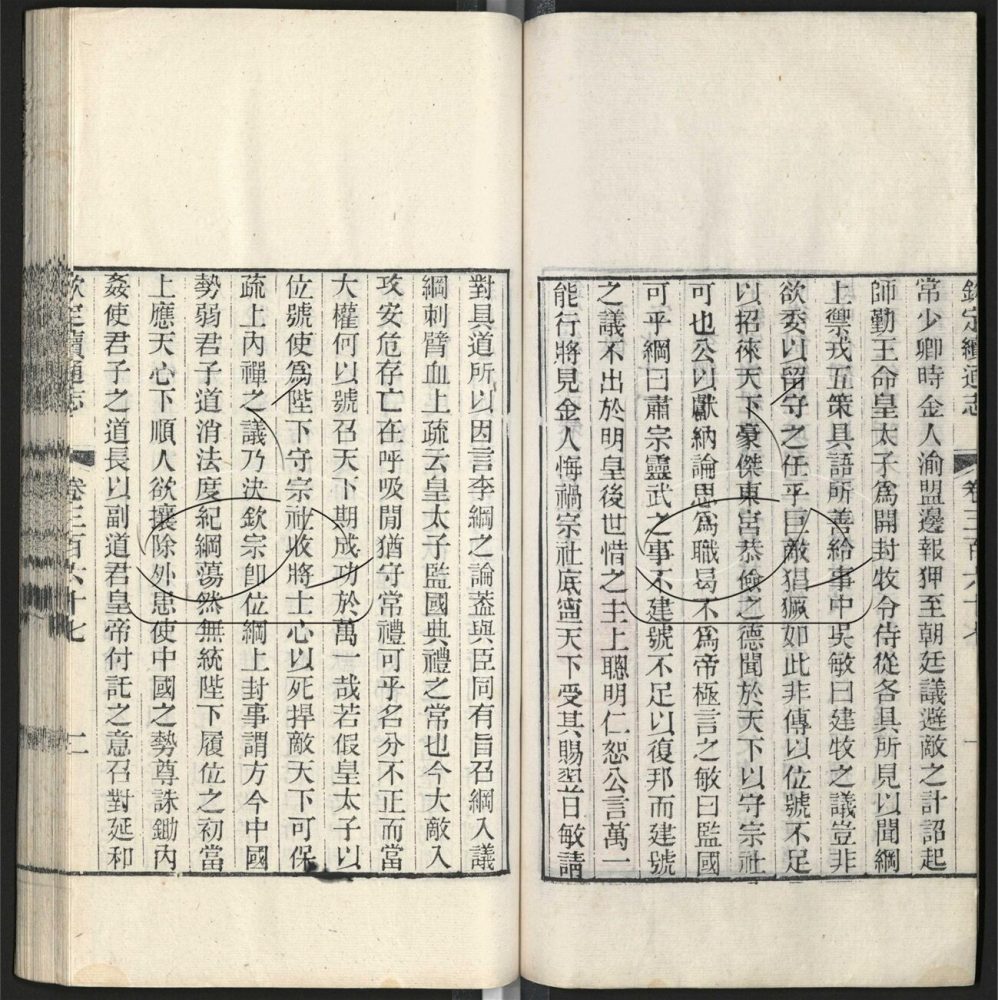 欽定續通志 卷三百六十七 一
常少卿時金人渝盟邊報狎至朝廷議避敵之計詔起
師勤王命皇太子爲開封牧令侍從各具所見以聞綱
上禦戎五策具語所善給事中吳敏曰建牧之議豈非
欲委以留守之任乎巨敵猖獗如此非傳以位號不足
以招徠天下豪傑東宮恭儉之德聞於天下以守宗社
可也公以獻納論思爲職曷不爲帝極言之敏曰監國
可乎綱曰肅宗靈武之事不建號不足以復邦而建號
之議不出於明皇後世惜之主上聰明仁恕公言萬一
能行將見金人悔禍宗社底寧天下受其賜翌日敏請
對具道所以因言李綱之論蓋與臣同有旨召綱入議
綱刺臂血上疏云皇太子監國典禮之常也今大敵入
攻安危存亡在呼吸閒猶守常禮可乎名分不正而當
大權何以號召天下期成功於萬一哉若假皇太子以
位號使爲陛下守宗社收將士心以死捍敵天下可保
疏上內禪之議乃決欽宗卽位綱上封事謂方今中國
勢弱君子道消法度紀綱蕩然無統陛下履位之初當
上應天心下順人欲攘除外患使中國之勢尊誅鋤內
姦使君子之道長以副道君皇帝付託之意召對延和
欽定續通志 卷三百六十七 二